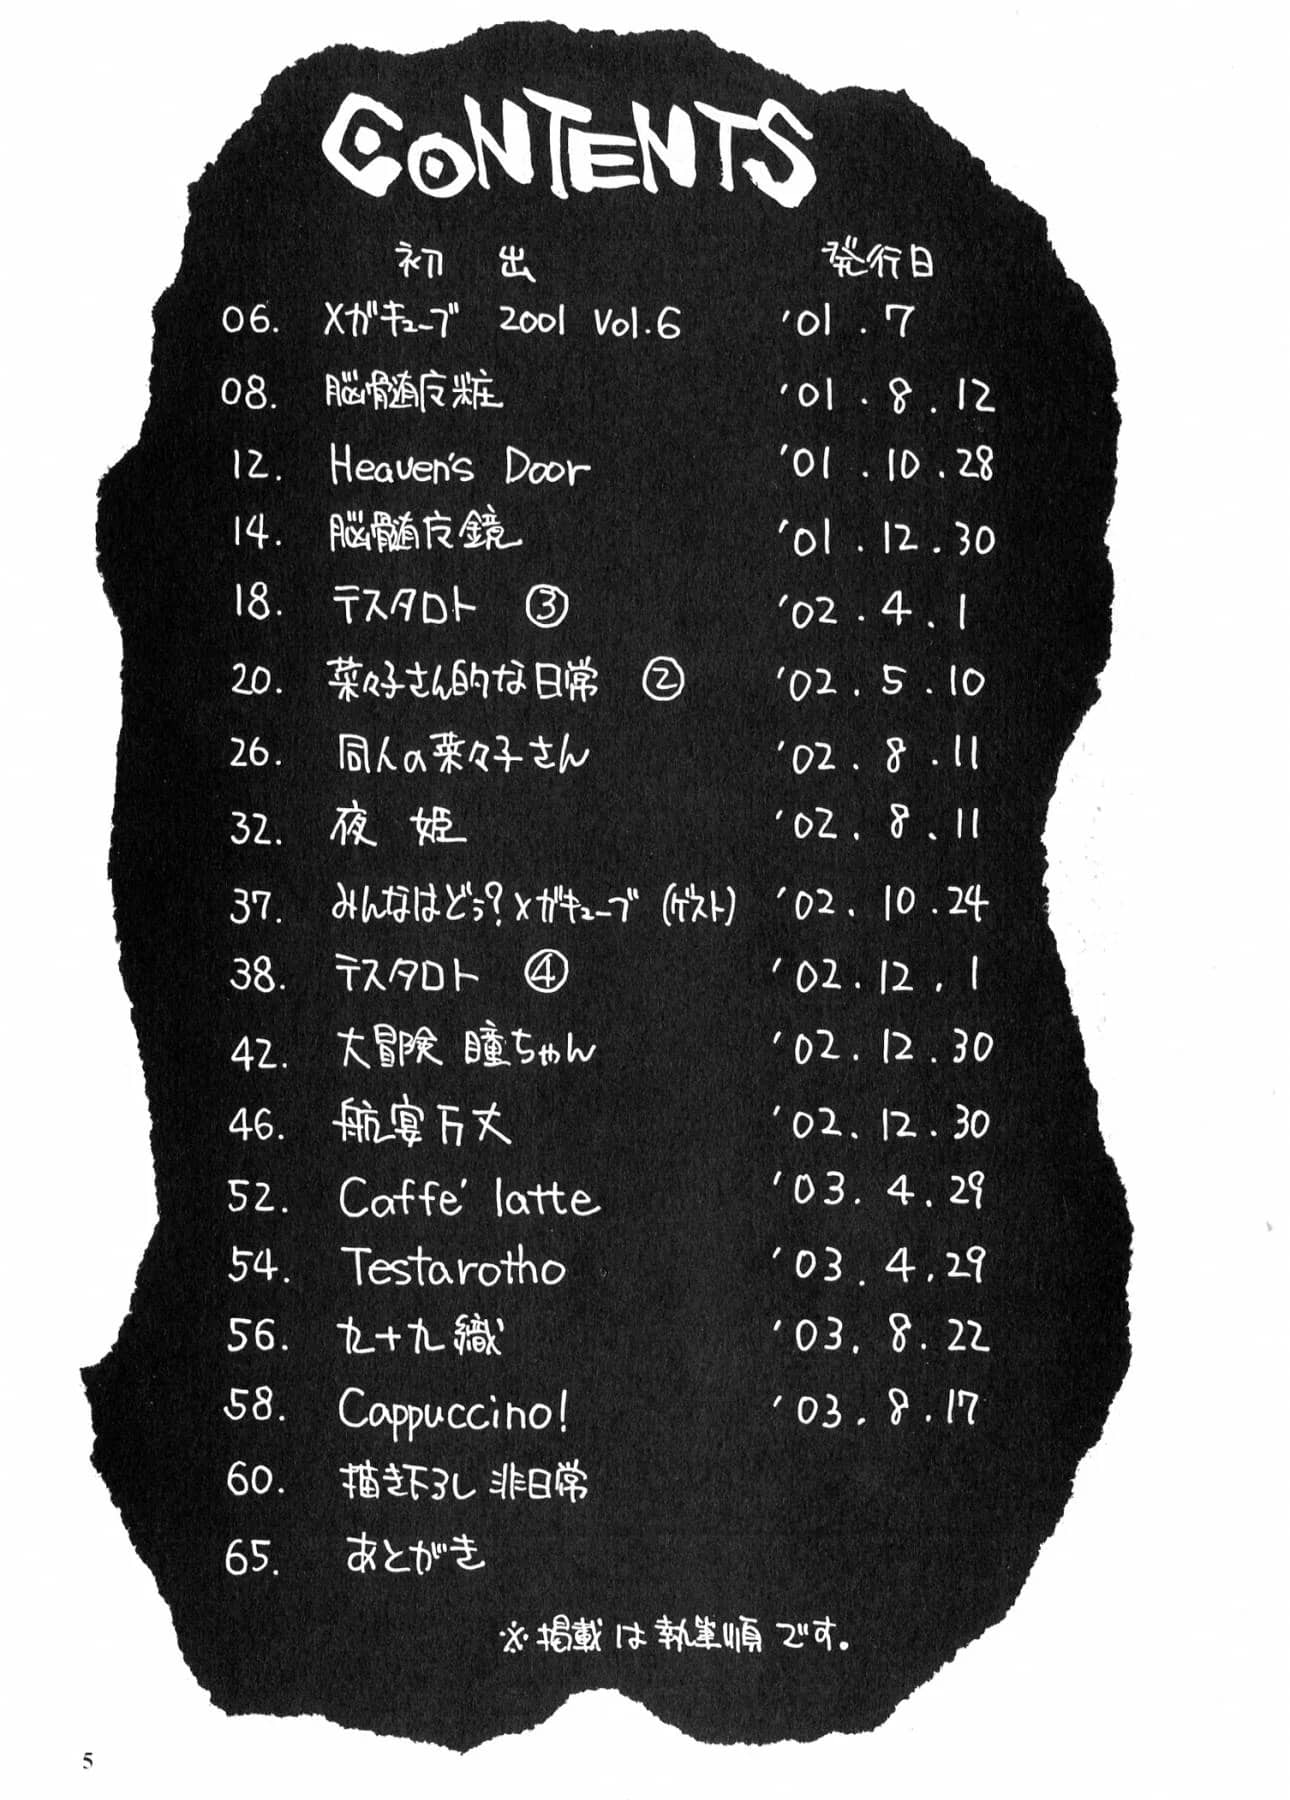 CONTENTS
初出 発行日
06. メガキューブ 2001 Vol.6 '01.7
08. 脳髄皮粧 '01.8.12
12. Heaven's Door '01.10.28
14. 脳髄皮鏡 '01.12.30
18. テスタロト ③ '02.4.1
20. 菜々子さん的な日常 ② '02.5.10
26. 同人の菜々子さん '02.8.11
32. 夜姫 '02.8.11
37. みんなはどう?メガキューブ(ゲスト) '02.10.24
38. テスタロト ④ '02.12.1
42. 大冒険 瞳ちゃん '02.12.30
46. 航宴万丈 '02.12.30
52. Caffe' latte '03.4.29
54. Testarotho '03.4.29
56. 九十九織 '03.8.22
58. Cappuccino! '03.8.17
60. 描き下ろし 非日常
65. あとがき
※掲載は執筆順です。
5